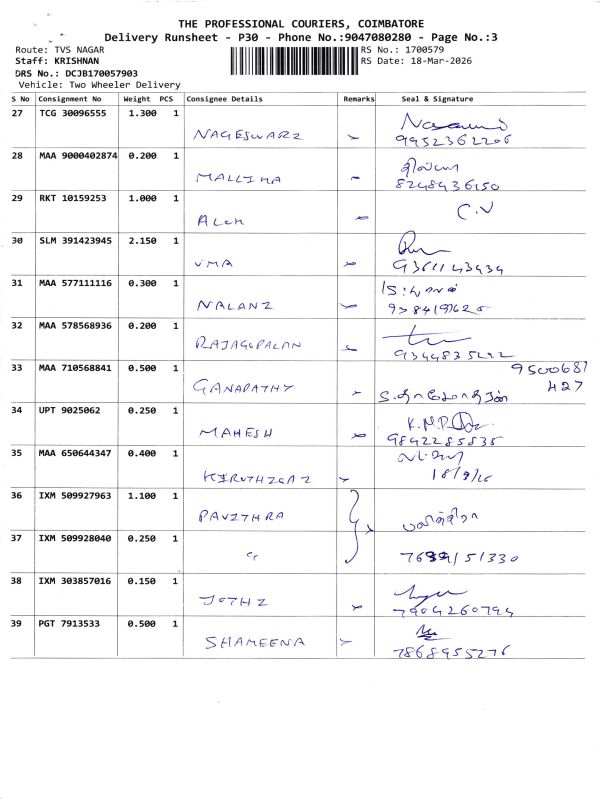 THE PROFESSIONAL COURIERS, COIMBATORE
Delivery Runsheet - P30 - Phone No.:9047080280 - Page No.:3
Route: TVS NAGAR
RS No.: 1700579
Staff: KRISHNAN
RS Date: 18-Mar-2026
DRS No.: DCJB170057903
Vehicle: Two Wheeler Delivery
S No Consignment No Weight PCS Consignee Details Remarks Seal & Signature
27 TCG 30096555 1.300 1
NAGESWARI 9952362206
28 MAA 9000402874 0.200 1
MALLIKA 8248436150
29 RKT 10159253 1.000 1
C.V
30 SLM 391423945 2.150 1
UMA 9361143434
31 MAA 577111116 0.300 1
NALANI
32 MAA 578568936 0.200 1
RAJAGOPALAN
33 MAA 710568841 0.500 1 9500681
GANAPATHY 427
34 UPT 9025062 0.250 1
MAHESH 9842285835
35 MAA 650644347 0.400 1
36 IXM 509927963 1.100 1
PAVITHRA
37 IXM 509928040 0.250 1
38 IXM 303857016 0.150 1
JOTHI 7904260794
39 PGT 7913533 0.500 1
SHAMEENA 7868955276